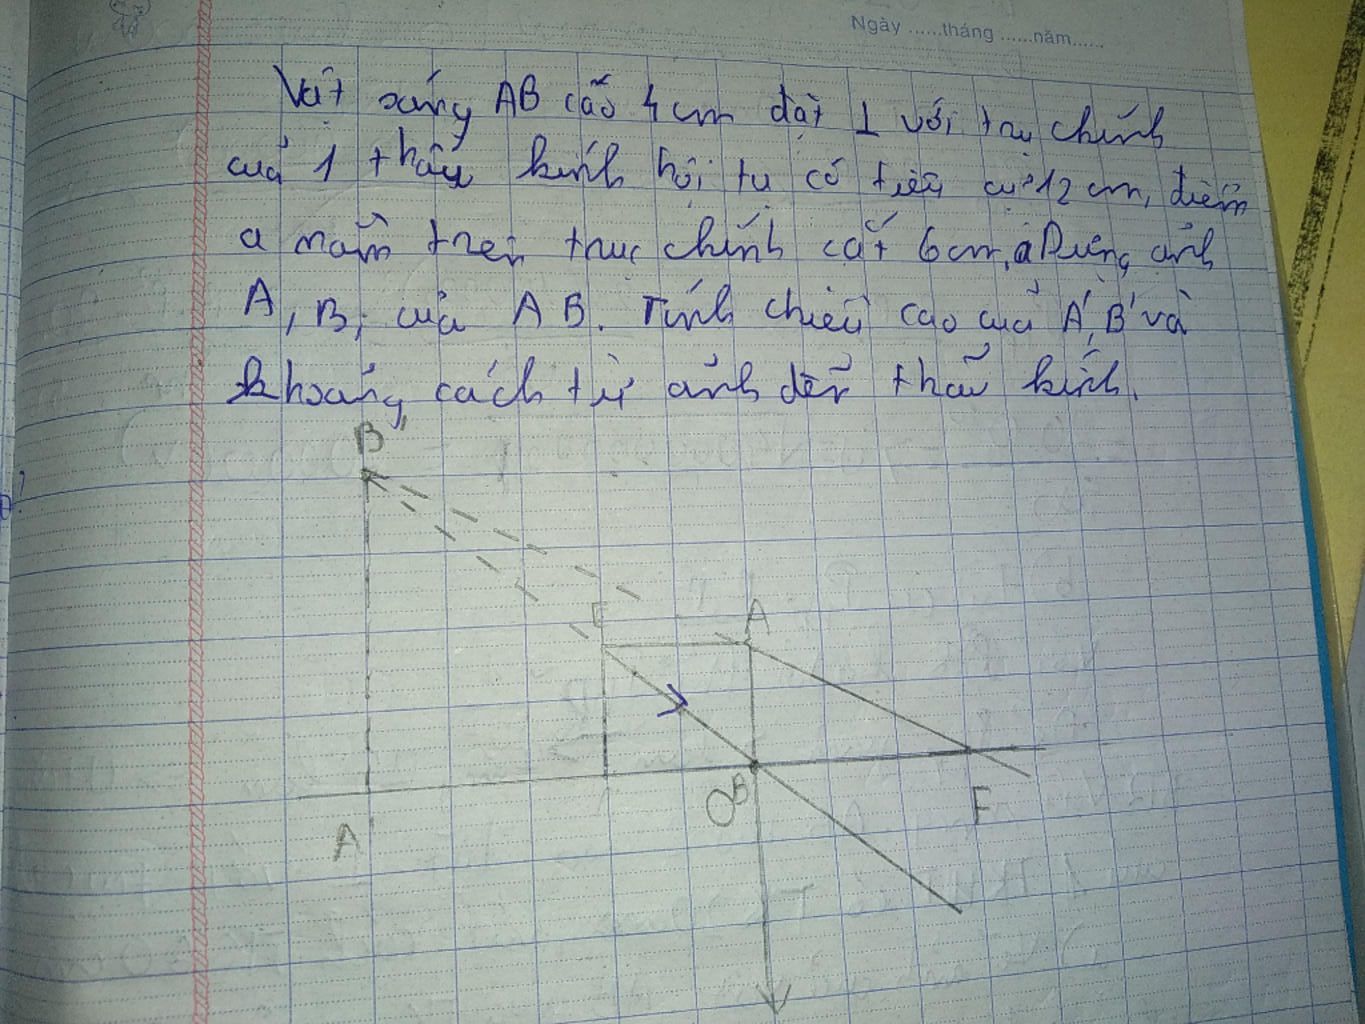 Ngày ......tháng ......năm......
Vật sáng AB cão 4 cm đặt ⊥ với trụ chính
cuả 1 thấu kính hội tụ có tiêu cự 12 cm, điểm
a nằm trên trục chính cắt 6 cm, a Dựng ảnh
A, B, của AB. Tính chiều cao của A', B' và
khoảng cách từ ảnh đến thấu kính.
B'
E
A
O
B
F
A